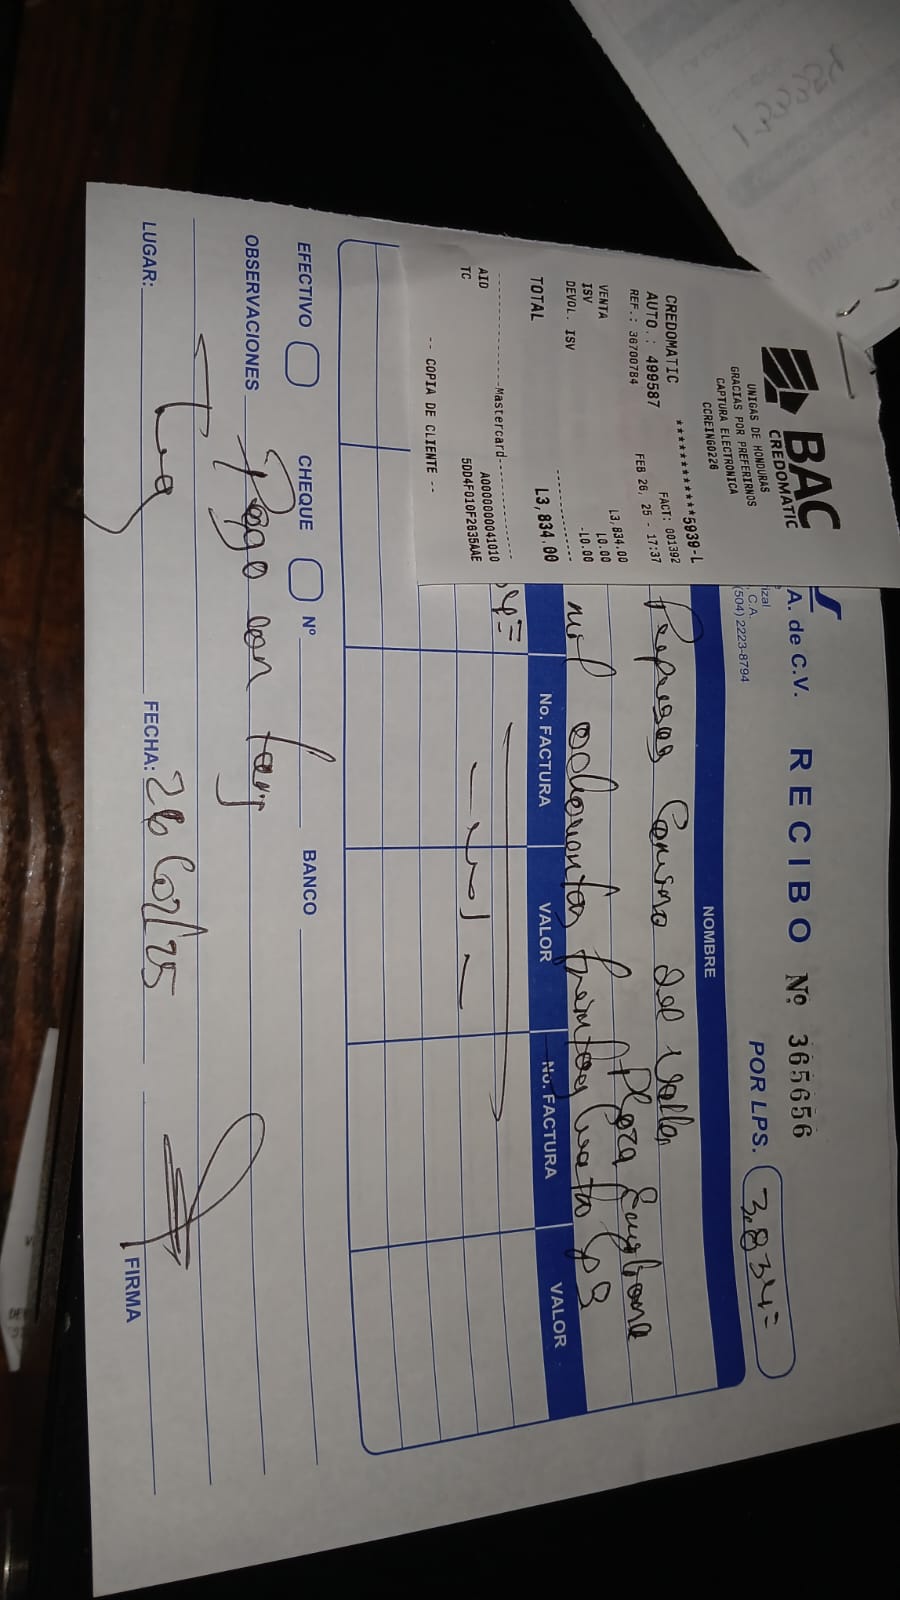 BAC
CREDOMATIC
UNIGAS DE HONDURAS
GRACIAS POR PREFERIRNOS
CAPTURA ELECTRONICA
CCREING0228
CREDOMATIC ************5939-L
AUTO.: 499587 FACT: 001392
REF.: 36700784 FEB 26, 25 - 17:37
VENTA L3,834.00
ISV L0.00
DEVOL. ISV -L0.00
TOTAL L3,834.00
Mastercard
AID A0000000041010
TC 5DD4F010F2635AAE
-- COPIA DE CLIENTE --
A. de C.V. RECIBO Nº 365656
C.A.
(504) 2223-8794
POR LPS. 3,834=
NOMBRE
del Valle
Plaza
mil ochocientos treinta
No. FACTURA VALOR No. FACTURA VALOR
EFECTIVO CHEQUE Nº BANCO
OBSERVACIONES Pago con
LUGAR: Teg FECHA: 26/02/25 FIRMA